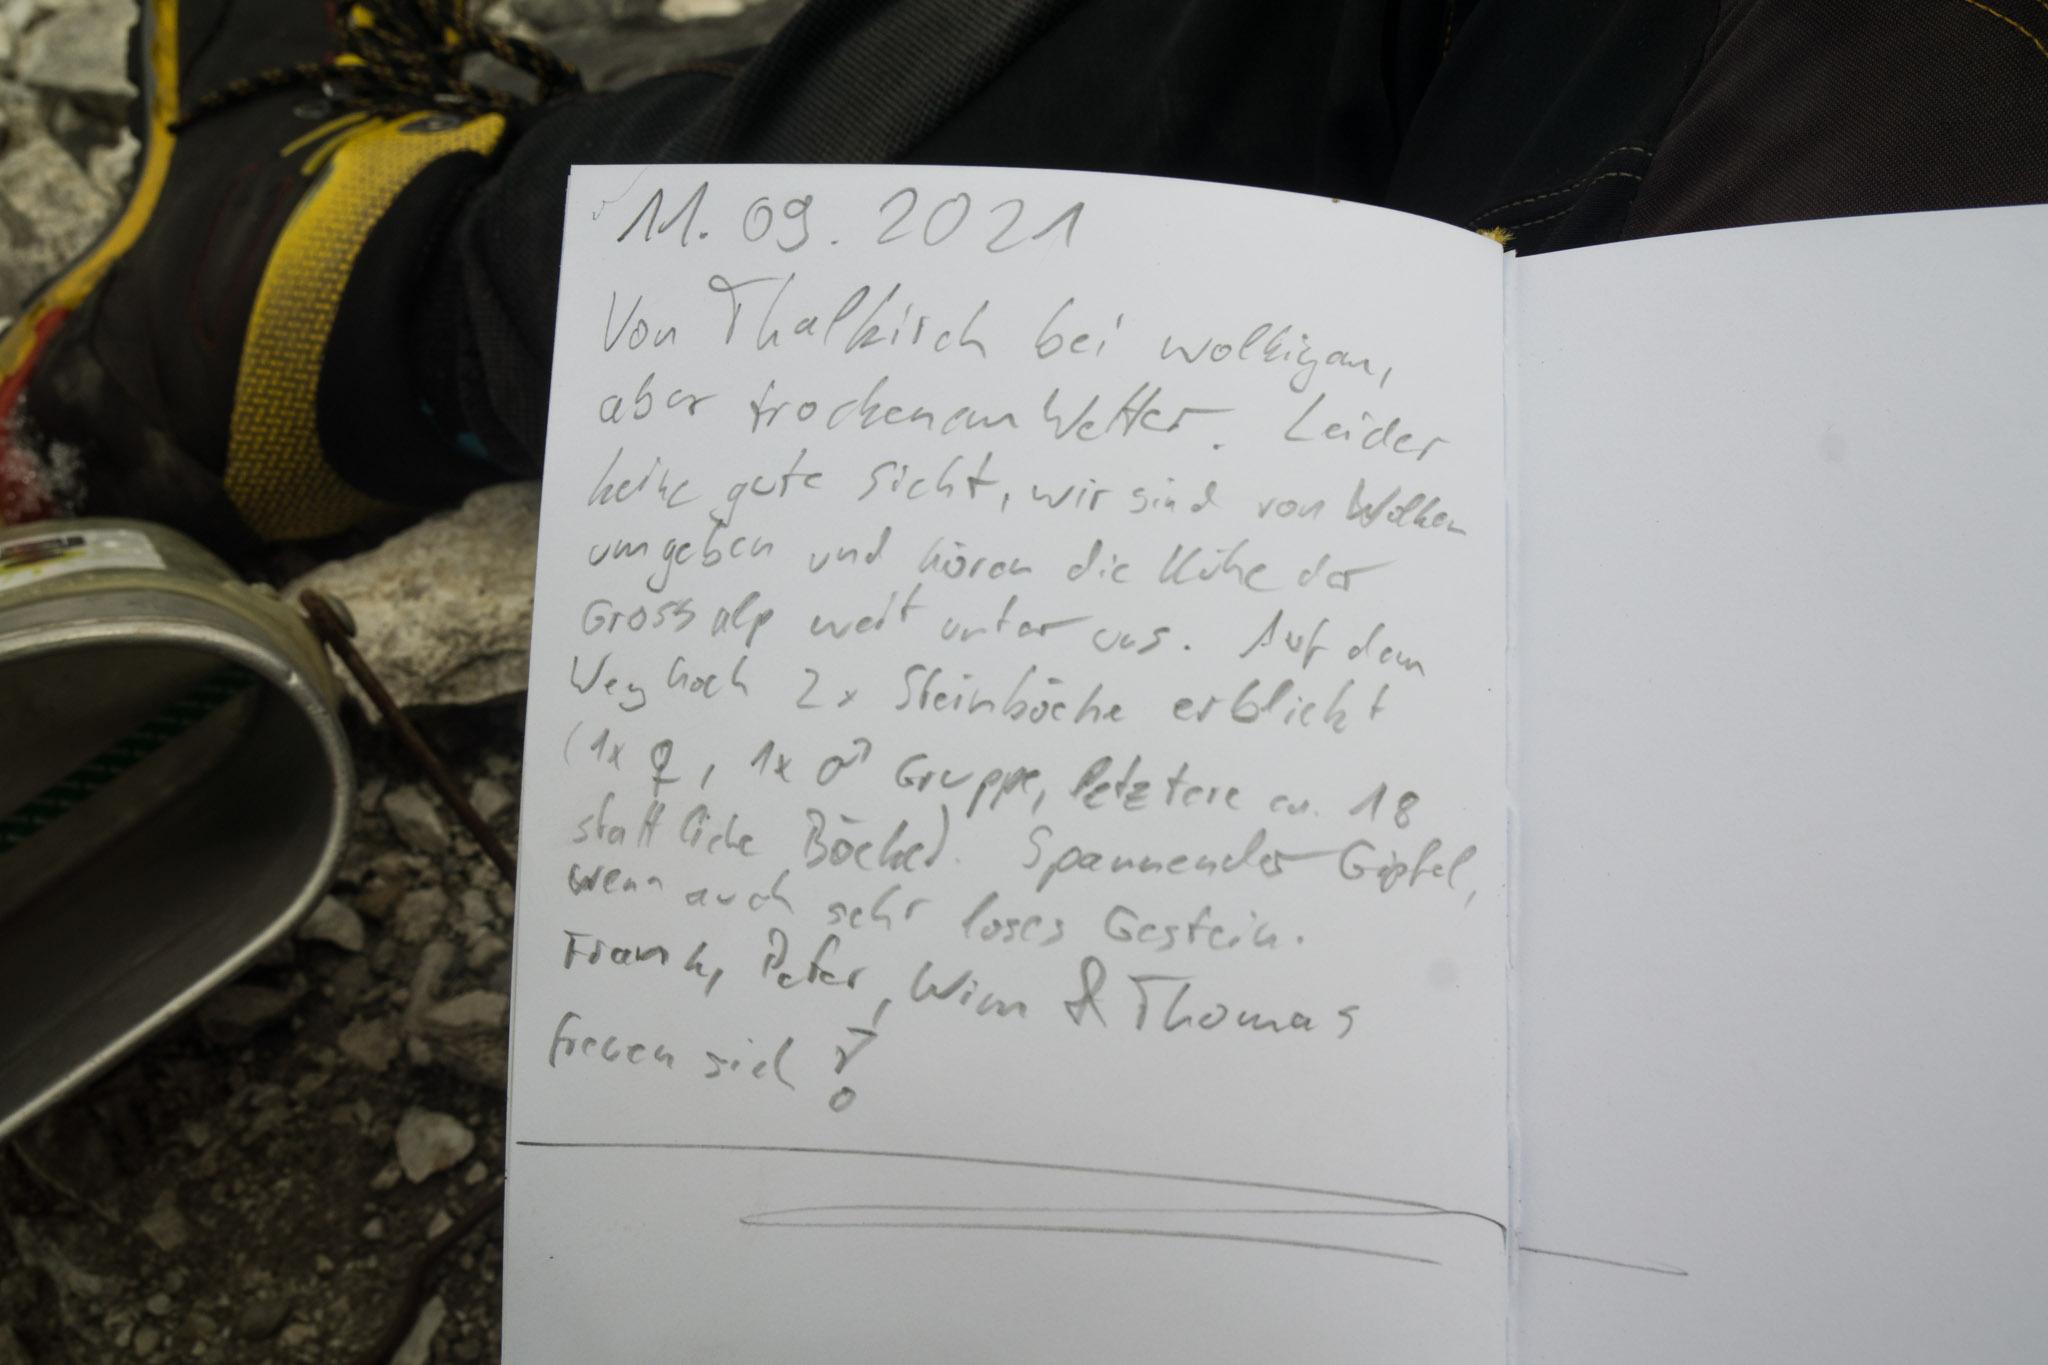 11.09.2021
Von Thalkirch bei wolkigem,
aber trockenem Wetter. Leider
keine gute Sicht, wir sind von Wolken
umgeben und hören die Kühe der
Grossalp weit unter uns. Auf dem
Weg hoch 2x Steinböcke erblickt
(1x ♀, 1x ♂ Gruppe, letztere ca. 18
stattliche Böcke). Spannender Gipfel,
wenn auch sehr loses Gestein.
Frank, Peter, Wim & Thomas
freuen sich!